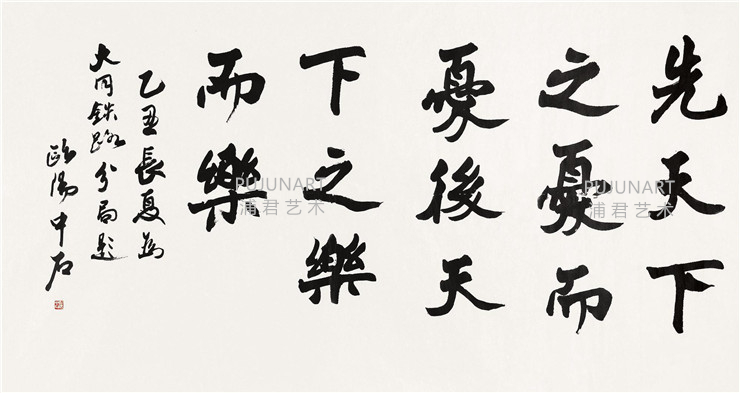 先天下
之憂而
憂後天
下之樂
而樂
乙丑長夏為
大同鉄路分局題
歐陽中石
PUJUNART
浦君艺术
PUJUNART
浦君艺术